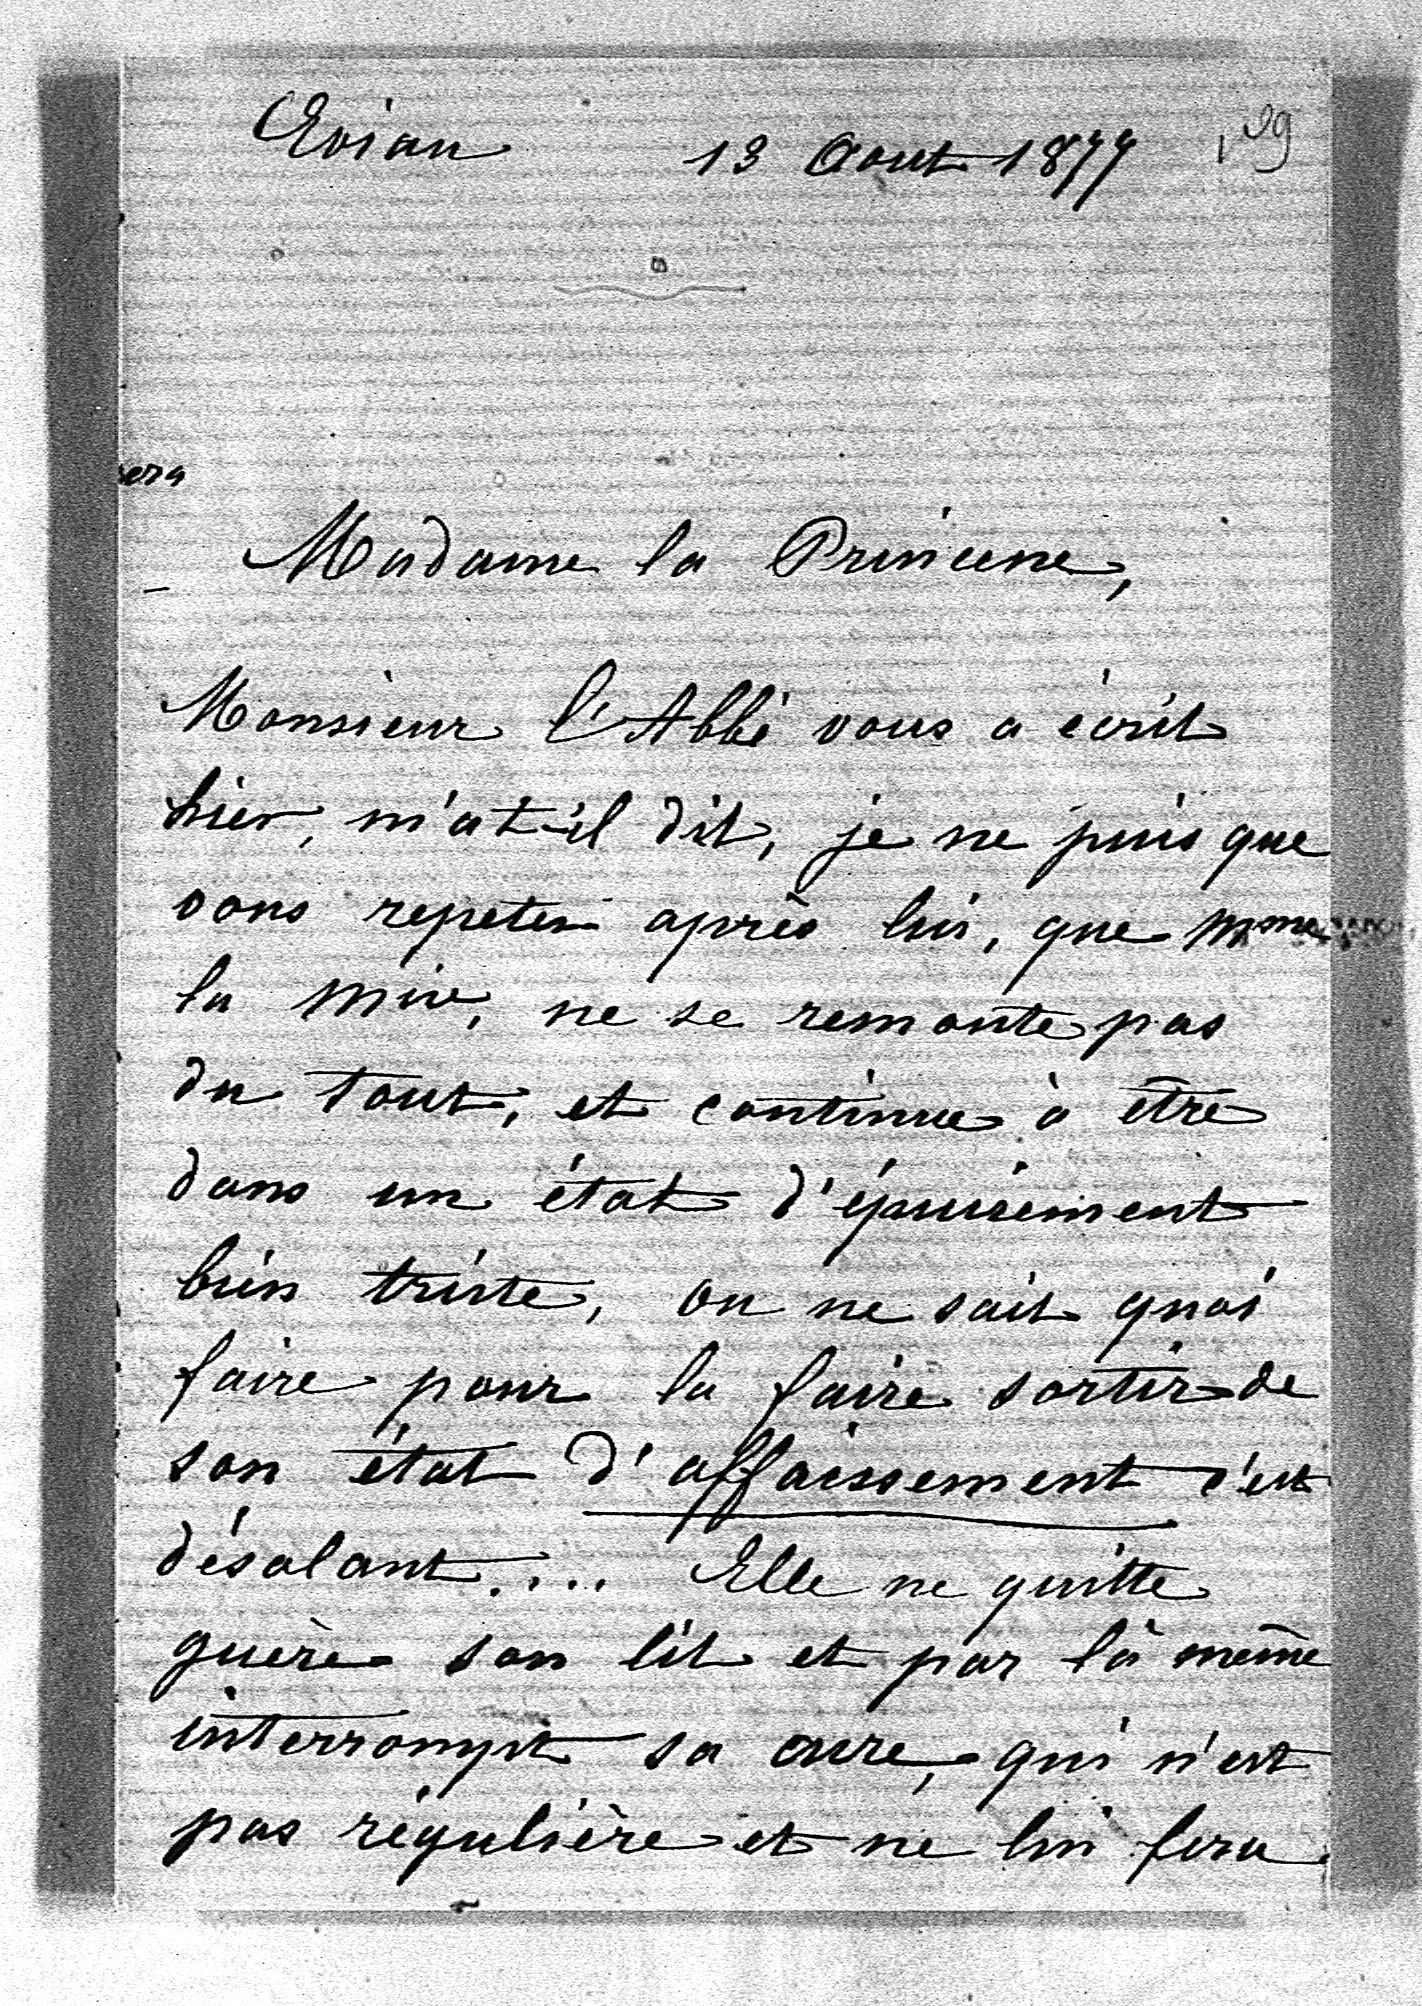 Evian 13 Aout 1877
Madame la Princesse,
Monsieur l'Abbé vous a écrit
hier, m'at-il dit, je ne puis que
vous repeter après lui, que Mme
la Mise, ne se remonte pas
du tout, et continue à être
dans un état d'épuisement
bien triste, on ne sait quoi
faire pour la faire sortir de
son état d'affaissement c'est
désolant.... Elle ne quitte
guère son lit et par là même
interrompt sa cure, qui n'est
pas régulière et ne lui fera